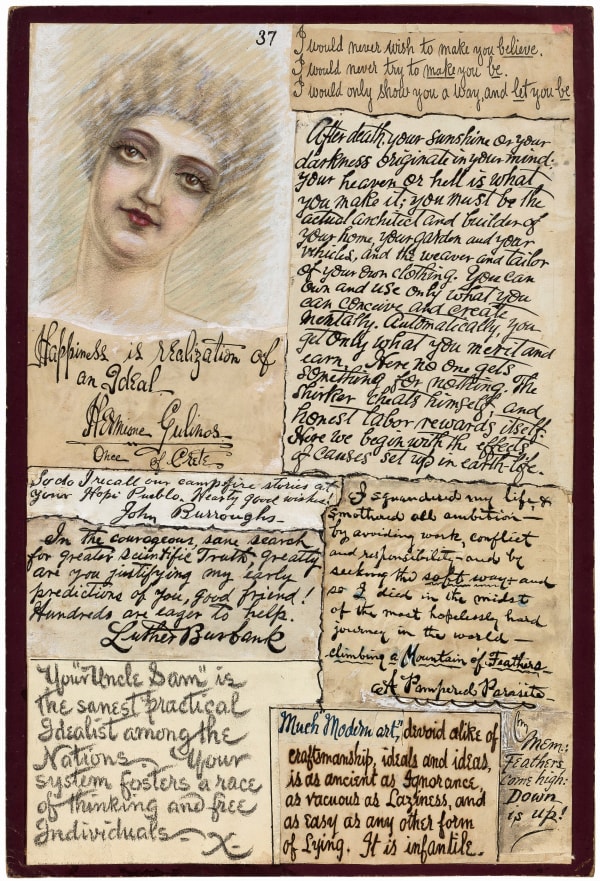 37
I would never wish to make you believe.
I would never try to make you be.
I would only show you a way, and let you be
After death, your sunshine or your
darkness originate in your mind.
Your heaven or hell is what
you make it; you must be the
actual architect and builder of
your home, your garden and your
vehicles, and the weaver and tailor
of your own clothing. You can
own and use only what you
can conceive and create
mentally. Automatically, you
get only what you merit and
earn. Here no one gets
something for nothing. The
shirker cheats himself, and
honest labor rewards itself.
Here we begin with the effects
of causes set up in earth-life.
Happiness is realization of
an Ideal.
Hermione Gulinos
Once of Crete
So do I recall our campfire stories at
your Hopi Pueblo. Hearty good wishes!
John Burroughs
In the courageous, sane search
for greater scientific Truth, greatly
are you justifying my early
predictions of you, good friend!
Hundreds are eager to help.
Luther Burbank
I squandered my life &
smothered all ambition —
by avoiding work, conflict
and responsibility, — and by
seeking the soft way — and
so I died in the midst
of the most hopelessly hard
journey in the world —
climbing a Mountain of Feathers
A Pampered Parasite
Your "Uncle Sam" is
the sanest practical
Idealist among the
Nations. Your
system fosters a race
of thinking and free
Individuals — X —
Much "Modern art", devoid alike of
craftsmanship, ideals and ideas,
is as ancient as Ignorance,
as vacuous as Laziness, and
as easy as any other form
of Lying. It is infantile.
Mem:
Feathers
come high:
Down
is up!